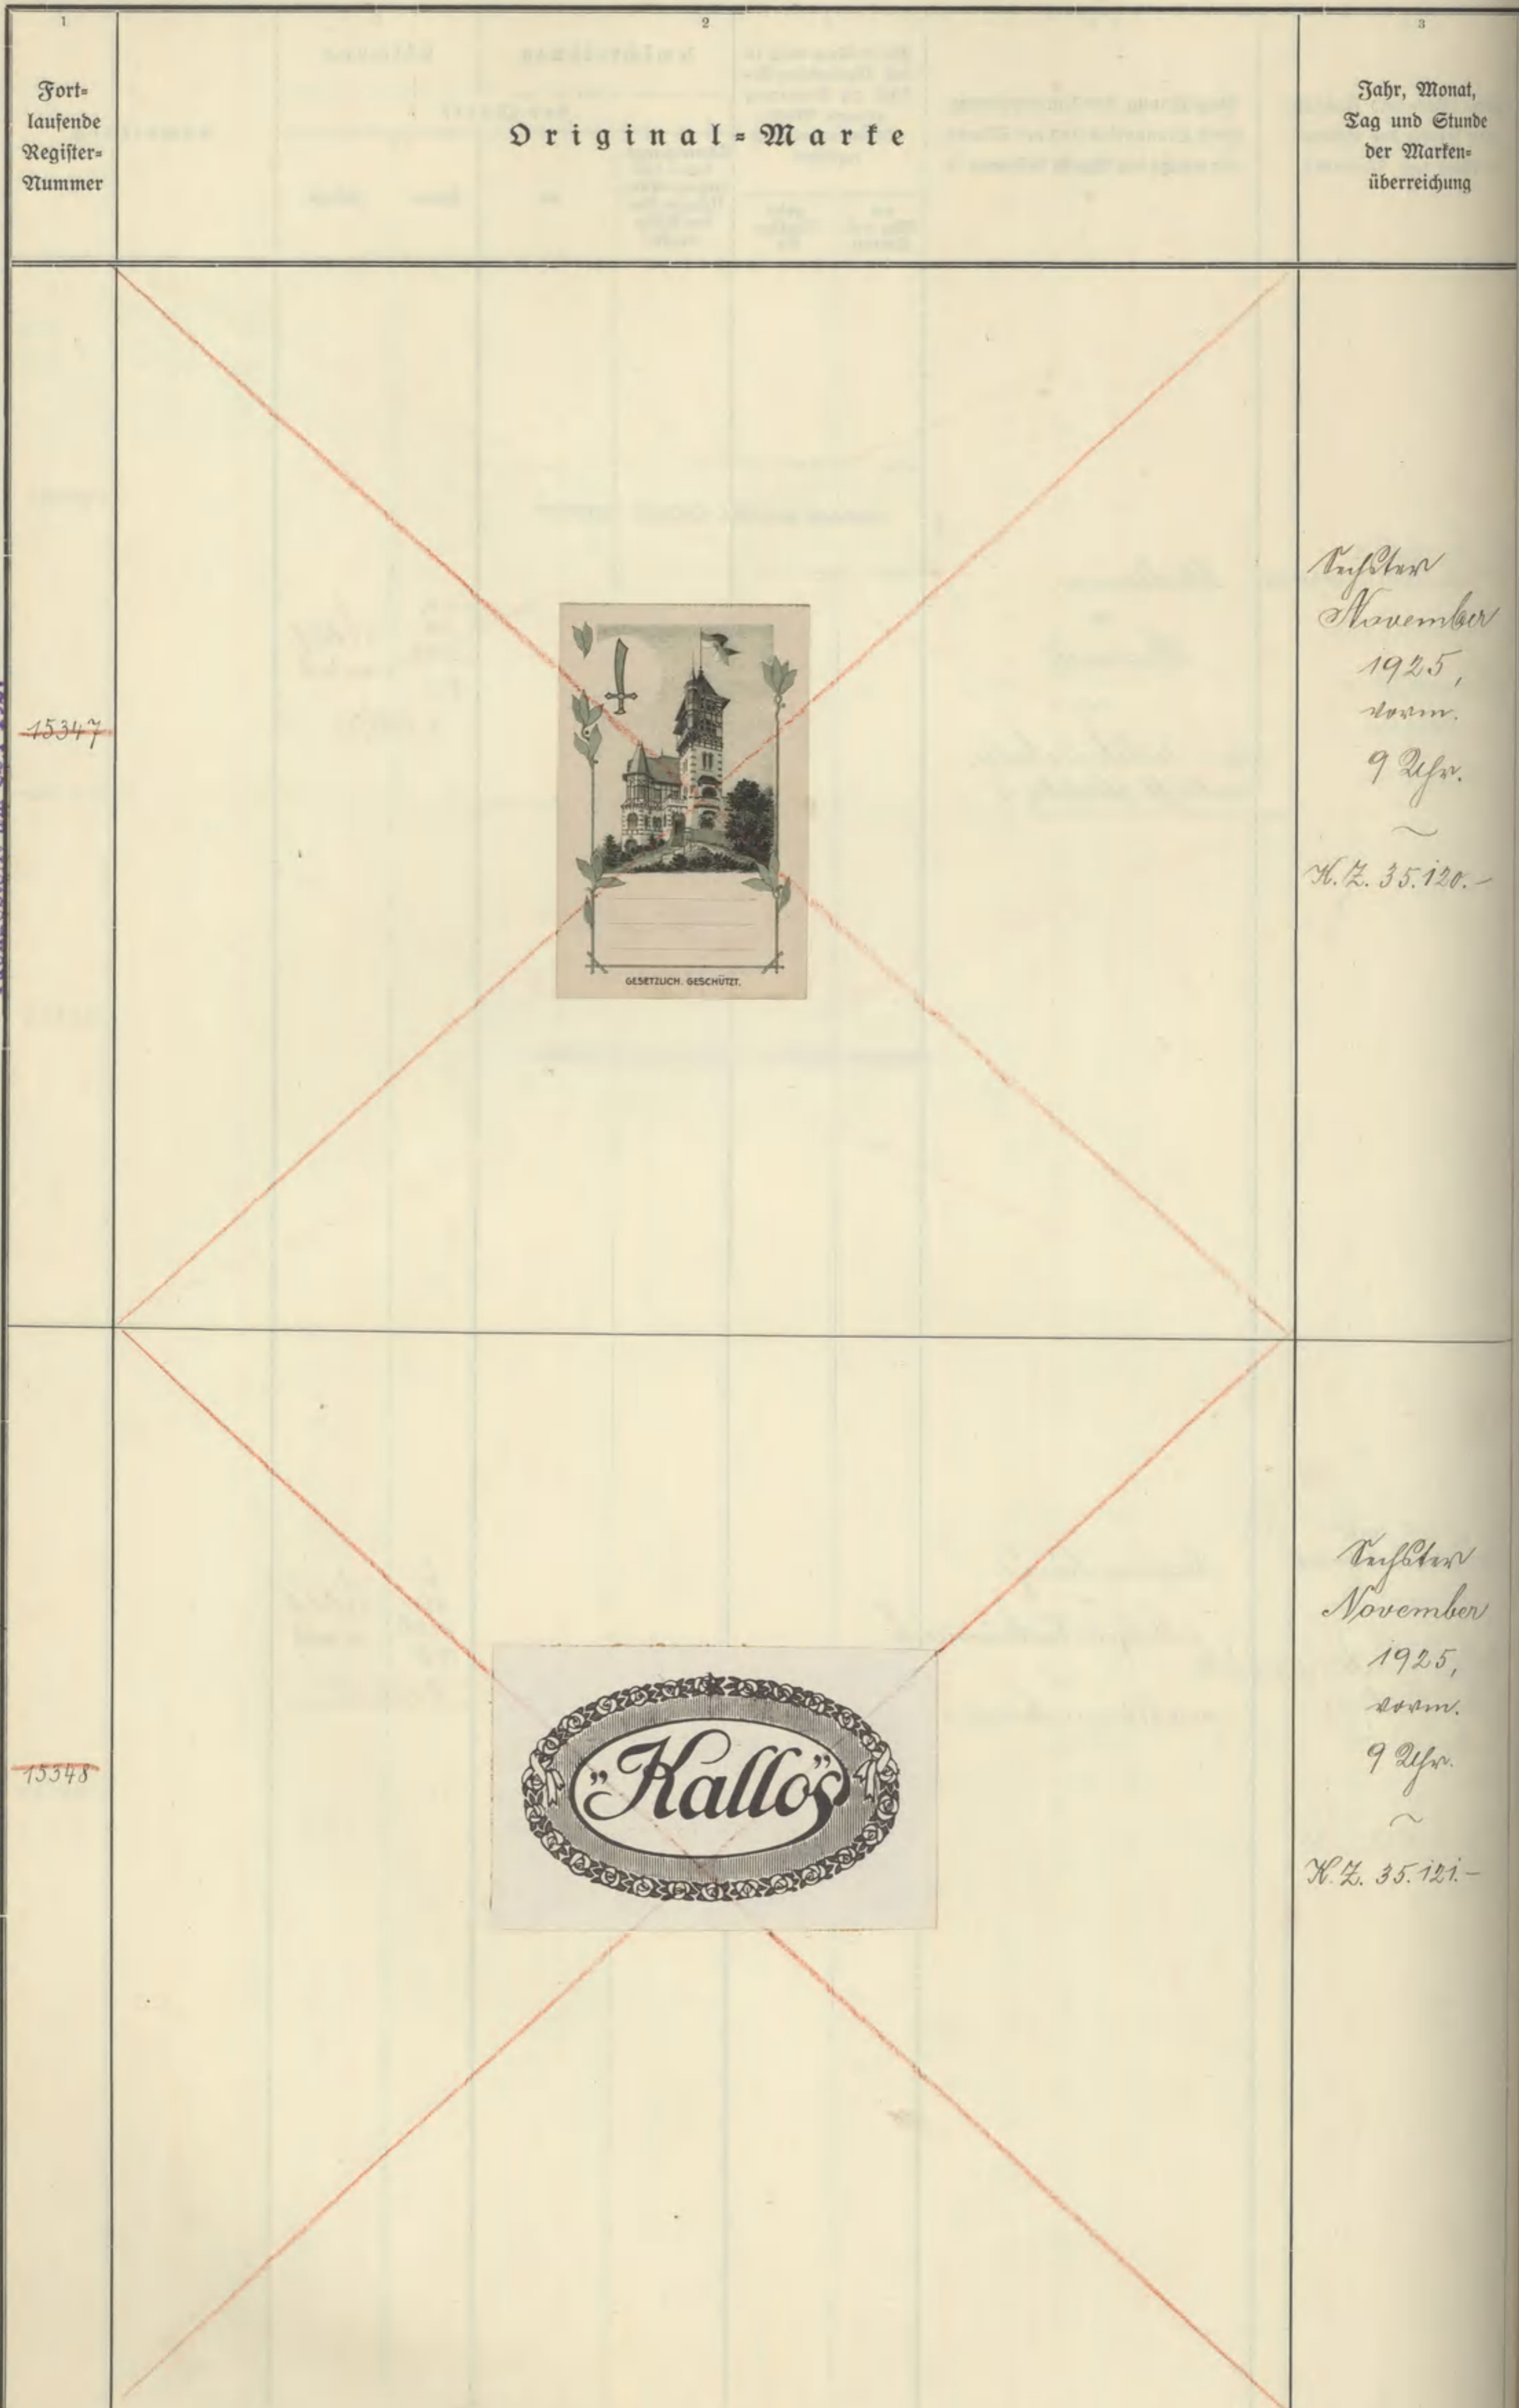 1
2
3
Fort=
laufende
Register=
Nummer
Original=Marke
Jahr, Monat,
Tag und Stunde
der Marken=
überreichung
15347
GESETZLICH. GESCHÜTZT.
Sechster
November
1925,
vorm.
9 Uhr.
K. Z. 35.120.-
15348
„Kallos”
Sechster
November
1925,
vorm.
9 Uhr.
K. Z. 35.121.-